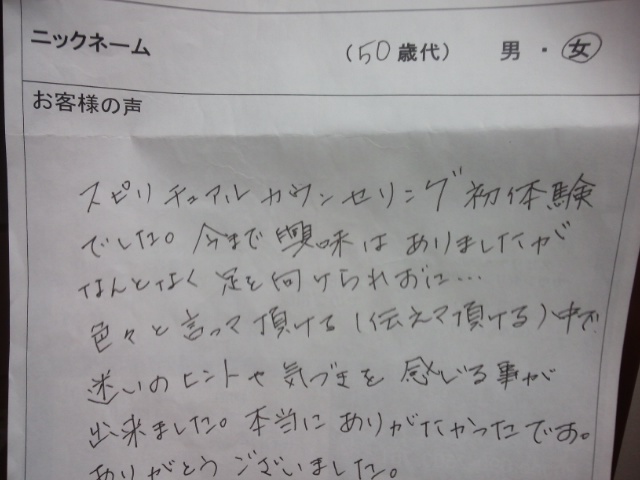 ニックネーム (50歳代) 男・女
お客様の声
スピリチュアルカウンセリング初体験
でした。今まで興味はありましたが
なんとなく足を向けられずに…
色々と言って頂ける(伝えて頂ける)中で
迷いのヒントや気づきを感じる事が
出来ました。本当にありがたかったです。
ありがとうございました。